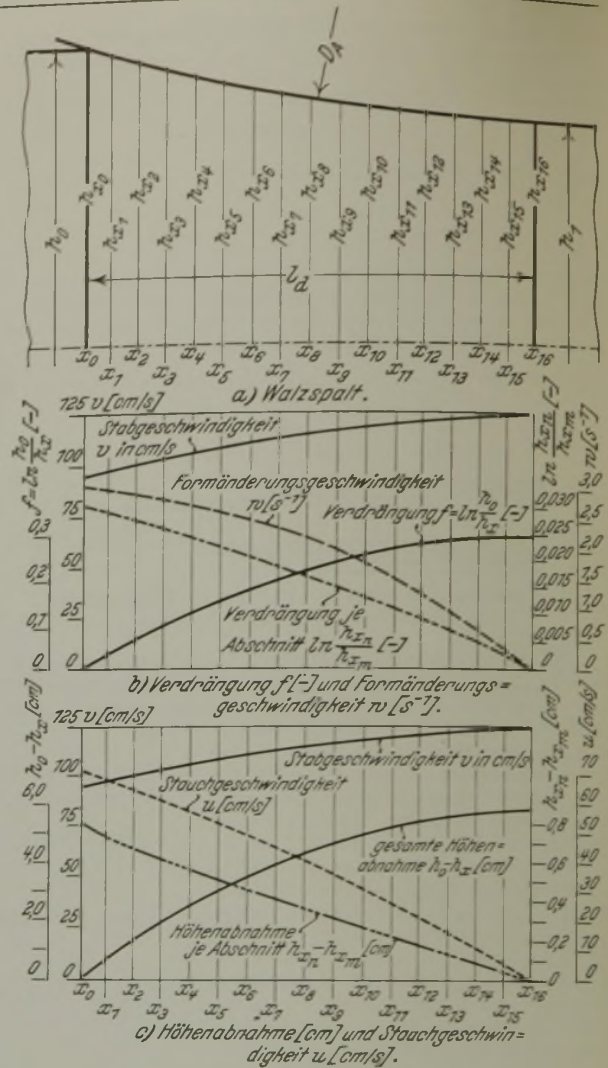 D_A
h_0 h_x0 h_x1 h_x2 h_x3 h_x4 h_x5 h_x6 h_x7 h_x8 h_x9 h_x10 h_x11 h_x12 h_x13 h_x14 h_x15 h_x16 h_1
l_d
x_0 x_1 x_2 x_3 x_4 x_5 x_6 x_7 x_8 x_9 x_10 x_11 x_12 x_13 x_14 x_15 x_16
a) Walzspalt.
f=ln h_0/h_x [-]
0,3
0,2
0,1
0
125 v [cm/s]
100
75
50
25
0
Stabgeschwindigkeit
v in cm/s
Formänderungsgeschwindigkeit
w [s⁻¹]
Verdrängung f=ln h_0/h_x [-]
Verdrängung je
Abschnitt ln h_xn/h_xm [-]
ln h_xn/h_xm [-]
0,030
0,025
0,020
0,015
0,010
0,005
0
w [s⁻¹]
3,0
2,5
2,0
1,5
1,0
0,5
0
b) Verdrängung f [-] und Formänderungs=
geschwindigkeit w [s⁻¹].
h_0-h_x [cm]
6,0
4,0
2,0
0
125 v [cm/s]
100
75
50
25
0
Stabgeschwindigkeit v in cm/s
Stauchgeschwindigkeit
u [cm/s]
gesamte Höhen=
abnahme h_0-h_x [cm]
Höhenabnahme
je Abschnitt h_xn-h_xm [cm]
h_xn-h_xm [cm]
0,8
0,6
0,4
0,2
0
u [cm/s]
70
60
50
40
30
20
10
0
x_0 x_1 x_2 x_3 x_4 x_5 x_6 x_7 x_8 x_9 x_10 x_11 x_12 x_13 x_14 x_15 x_16
c) Höhenabnahme [cm] und Stauchgeschwin=
digkeit u [cm/s].